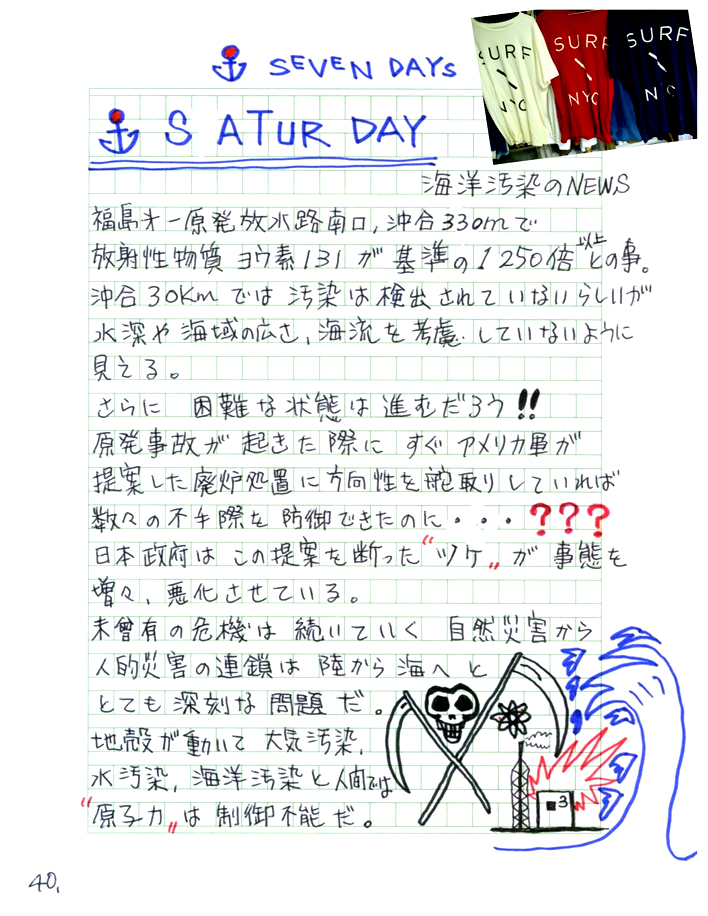 SEVEN DAYS
SURF NYC
SURF NYC
SURF NYC
SATURDAY
海洋汚染のNEWS
福島第一原発放水路南口,沖合330mで
放射性物質 ヨウ素131が 基準の1250倍以上との事。
沖合30Kmでは 汚染は検出されていないらしいが
水深や海域の広さ,海流を考慮していないように
見える。
さらに 困難な状態は進むだろう!!
原発事故が起きた際に すぐアメリカ軍が
提案した廃炉処置に方向性を舵取りしていれば
数々の不手際を防御できたのに・・・???
日本政府は この提案を断った“ツケ”が 事態を
増々、悪化させている。
未曾有の危機は 続いていく 自然災害から
人的災害の連鎖は 陸から海へと
とても深刻な問題だ。
地殻が動いて 大気汚染,
水汚染,海洋汚染と人間では
“原子力”は制御不能だ。
3
40.